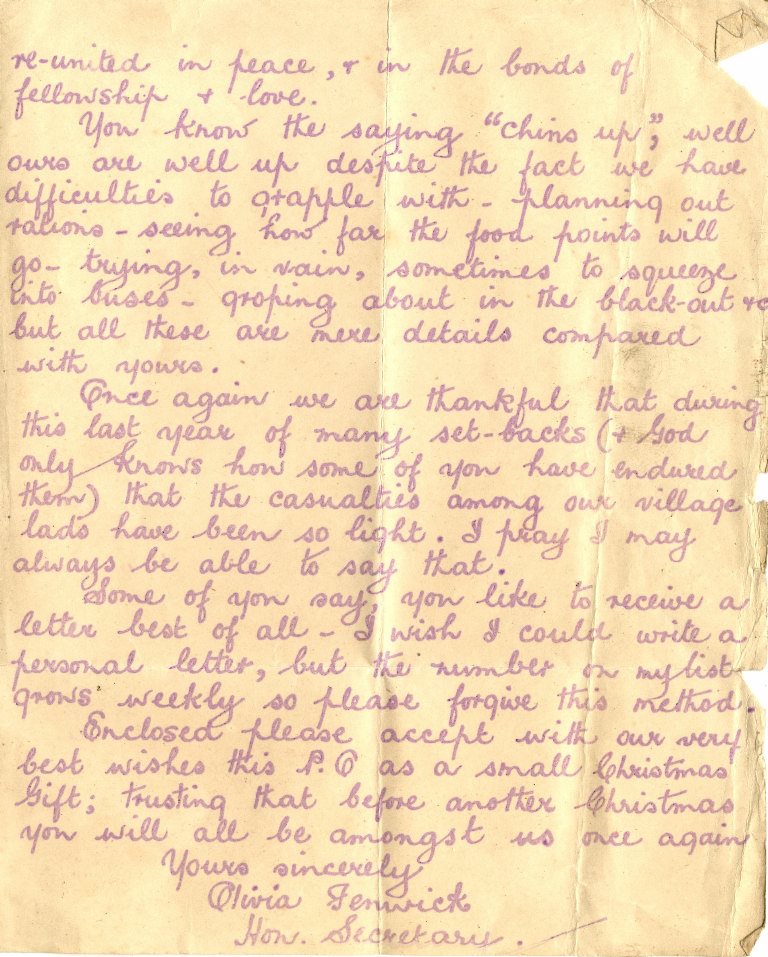 re-united in peace, & in the bonds of
fellowship & love.
You know the saying "chins up", well
ours are well up despite the fact we have
difficulties to grapple with - planning out
rations - seeing how far the food points will
go - trying, in vain, sometimes to squeeze
into buses - groping about in the black-out &c
but all these are mere details compared
with yours.
Once again we are thankful that during
this last year of many set-backs (& God
only knows how some of you have endured
them) that the casualties among our village
lads have been so light. I pray I may
always be able to say that.
Some of you say, you like to receive a
letter best of all - I wish I could write a
personal letter, but the number on my list
grows weekly so please forgive this method.
Enclosed please accept with our very
best wishes this P.O as a small Christmas
Gift; trusting that before another Christmas
you will all be amongst us once again
Yours sincerely
Olivia Fenwick
Hon. Secretary.